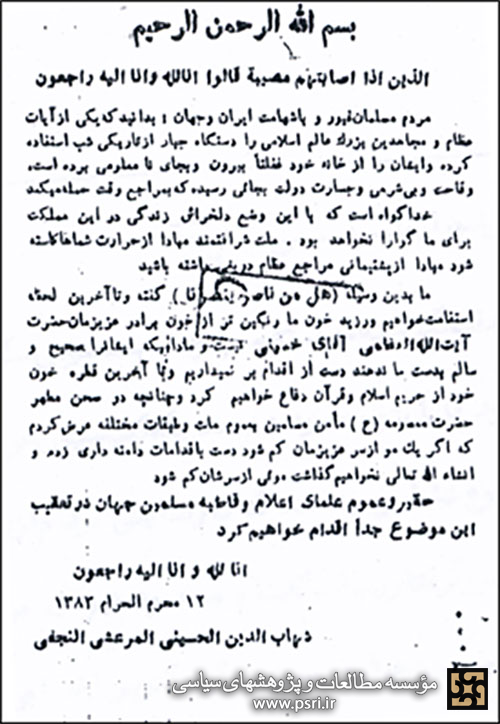 بسم الله الرحمن الرحیم
الذین اذا اصابتهم مصیبة قالوا انالله وانا الیه راجعون
مردم مسلمان غیور و باشهامت ایران وجهان ! بدانید که یکی از آیات
عظام و مجاهدین بزرك عالم اسلامی را دستگاه جبار از تاریکی شب استفاده
کرده وایشان را از خانه خود غفلتاً بیرون وبجای نا معلومی برده است،
وقاحت و بی‌شرمی وجسارت دولت بجائی رسیده که بمراجع وقت حمله میکند
خدا گواه است که با این وضع دلخراش زندگی در این مملکت
برای ما گوارا نخواهد بود . ملت شرافتمند مبادا از حرارت شماها کاسته
شود مبادا از پشتیبانی مراجع عظام دریغی داشته باشید
ما بدین وسیله (هل من ناصر ینصرنا) گفته و تا آخرین لحظه
استقامت خواهیم ورزید خون ما رنگین تر از خون برادر عزیزمان حضرت
آیت‌الله العظمی آقای خمینی نیست و مادامیکه ایشانرا صحیح و
سالم بدست ما ندهند دست از اقدام بر نمیداریم و تا آخرین قطره خون
خود از حریم اسلام وقرآن دفاع خواهیم کرد و چنانچه در صحن مطهر
حضرت معصومه (ع) مأمن مسلمین بعموم ملت وطبقات مختلفه عرض کردم
که اگر یك مو از سر عزیزمان کم شود دست باقدامات دامنه داری زده و
انشاء الله تعالی نخواهیم گذاشت موئی از سرشان کم شود
حقیر و عموم علمای اعلام و قاطبه مسلمین جهان در تعقیب
این موضوع جداً اقدام خواهیم کرد
انا لله و انا الیه راجعون
۱۲ محرم الحرام ۱۳۸۳
شهاب الدین الحسینی المرعشی النجفی
مؤسسه مطالعات و پژوهشهای سیاسی
www.psri.ir